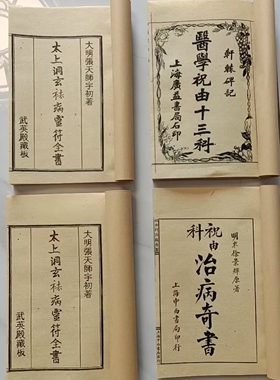 大明張天師字初著
太上洞玄祛病靈符全書
武英殿藏板
軒轅碑記
醫學祝由十三科
上海廣益書局石印
大明張天師字初著
太上洞玄祛病靈符全書
武英殿藏板
明末徐景輝原著
祝由科
治病奇書
上海中西書局印行